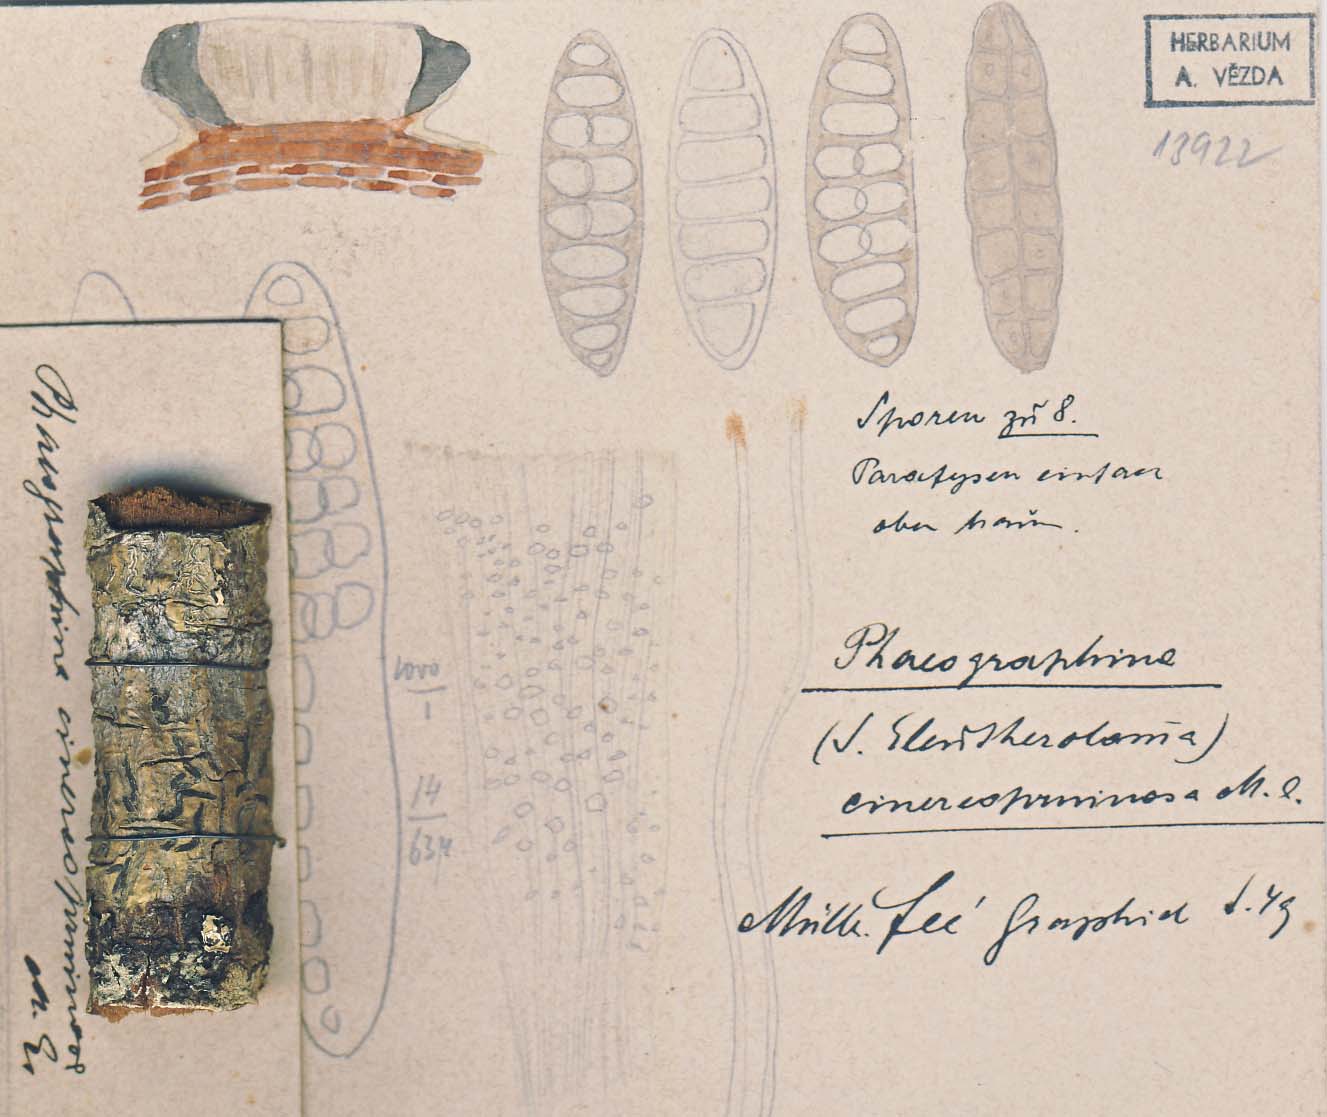 HERBARIUM
A. VĚZDA
13922
Sporen zŭ 8.
Parafysen einfach
oben braŭn.
1000
1
14
634
Phaeographina
(S. Eleŭtheroloma)
cinereopruinosa M. A.
Müll. Feé Graphid S. 49
Phaeographina cinereopruinosa